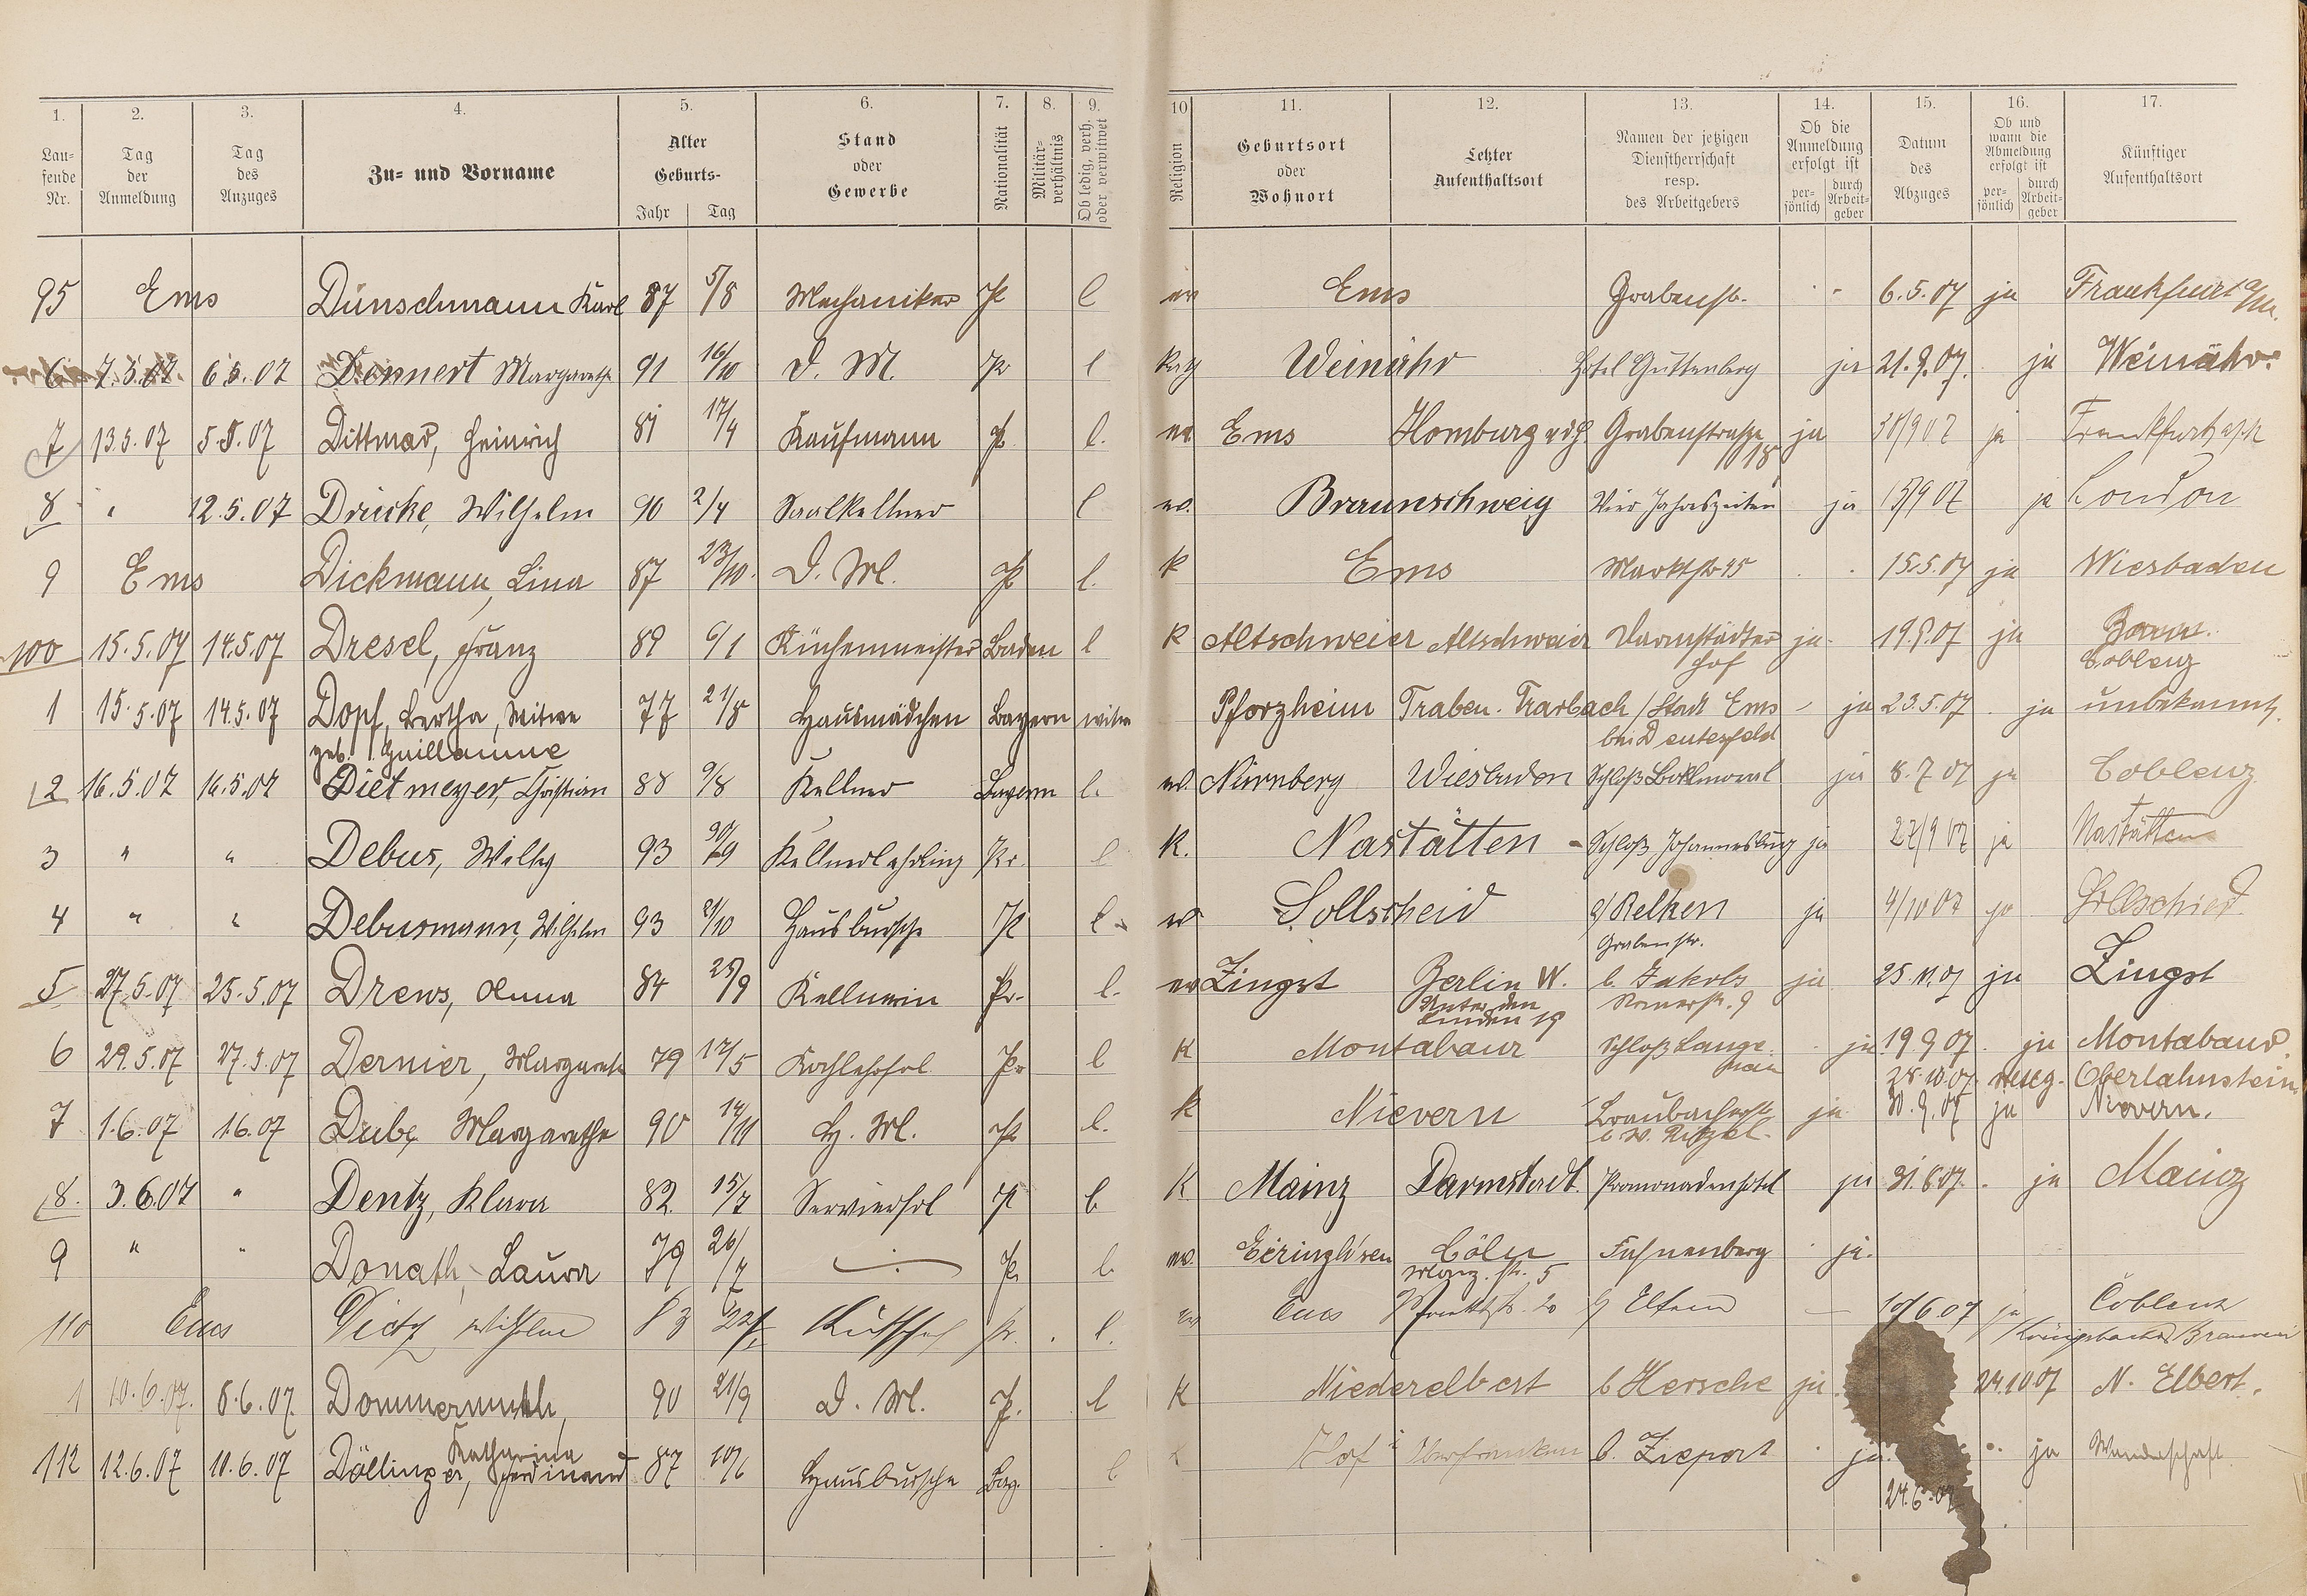 1. 2. 3. 4. 5. 6. 7. 8. 9. 10 11. 12. 13. 14. 15. 16. 17.
Lau-
fende
Nr.
Tag
der
Anmeldung
Tag
des
Anzuges
Zu- und Vorname
Alter
Geburts-
Jahr Tag
Stand
oder
Gewerbe
Nationalität
Militär-
verhältnis
Ob ledig, verh.
oder verwitwet
Religion
Geburtsort
oder
Wohnort
Letzter
Aufenthaltsort
Namen der jetzigen
Dienstherrschaft
resp.
des Arbeitgebers
Ob die
Anmeldung
erfolgt ist
per-
sönlich
durch
Arbeit-
geber
Datum
des
Abzuges
Ob und
wann die
Abmeldung
erfolgt ist
per-
sönlich
durch
Arbeit-
geber
Künftiger
Aufenthaltsort
95 Ems Dünschmann Karl 87 5/8 Mechaniker Pr l ev Ems Grabenstr. 6.5.07 ja Frankfurt a/M.
6 7.5.07 6.5.07 Dennert Margarethe 91 16/10 D. M. Pr l kath Weinähr Hotel Guttenberg ja 21.9.07. ja Weinähr.
7 13.5.07 5.5.07 Dittmar, Heinrich 81 17/4 Kaufmann Pr l. ev Ems Homburg v d H. Grabenstraße 18 ja 30/9 07 ja Frankfurt a/M
8 " 12.5.07 Drücke, Wilhelm 90 2/4 Saalkellner l ev. Braunschweig Vier Jahreszeiten ja 15/9 07 ja London
9 Ems Dickmann, Lina 87 23/10. D. M. Pr l. k Ems Marktstr 45 15.5.07 ja Wiesbaden
100 15.5.07 14.5.07 Dresel, Franz 89 6/1 Küchenmeister Baden l k Altschweier Altschweier Darmstädter ja 19.9.07 ja
Hof Coblenz
1 15.5.07 14.5.07 Dopf, Bertha, Witwe 77 21/8 Hausmädchen Bayern witw Pforzheim Traben-Trarbach / Stadt Ems ja 23.5.07 ja unbekannt.
geb. Guillaume bei Deutesfeld
2 16.5.07 16.5.07 Dietmeyer, Christian 88 9/8 Kellner Bayern l. ev. Nürnberg Wiesbaden Schloß Ballmoral ja 8.7 07 ja Coblenz
3 " " Debus, Willy 93 30/9 Kellnerlehrling Pr. l k. Nastätten Schloß Johannesburg ja 27/9 07 ja Nastätten
4 " " Debusmann, Wilhelm 93 21/10 Hausbursche Pr l. ev Sollscheid b/ Relken ja 4/10 07 ja
Grabenstr.
5 27.5.07 25.5.07 Drews, Anna 84 25/9 Kellnerin Pr. l. ev Zingst Berlin W. b. Jakobs ja 25.11.07 ja Zingst
Unter den Römerstr. 9
Linden 19
6 29.5.07 27.5.07 Dernier, Margarete 79 17/5 Kochlehrfrl. Pr l K Montabaur Schloß Lange- ja 19.9 07. ja Montabaur.
nau 28.10.07 Oberlahnstein
7 1.6.07 1.6.07 Dube, Margarethe 90 14/11 H. M. Pr l. k Nievern Braubacherstr ja 30.9.07 ja Nievern.
b W. Ritzel.
8. 3.6.07 " Dentz, Klara 82. 15/7 Servierfrl Pr l. K Mainz Darmstadt. Promenadenhotel ja 31.8.07. ja Mainz
9 " " Donath, Laura 79 26/7 Pr. l. ev. Cöln ja.
str. 5
110 Ems Dietz, Wilhelm 83 Kutscher Pr. l. ev Ems 20 b/ Eltern 10/6 07 ja Coblenz
Königsbacher Brauerei
1 10.6.07. 8.6.07. Dommermuth, 90 21/9 D. M. Pr. l K Niederelbert b Hersche ja 24.10 07 N. Elbert.
Katharina
112 12.6.07 10.6.07 Döllinger, Ferdinand 87 10/6 Hausbursche Bay. l Hof i Oberfranken b. Ziepert ja. ja Wanderschaft
24.6.07